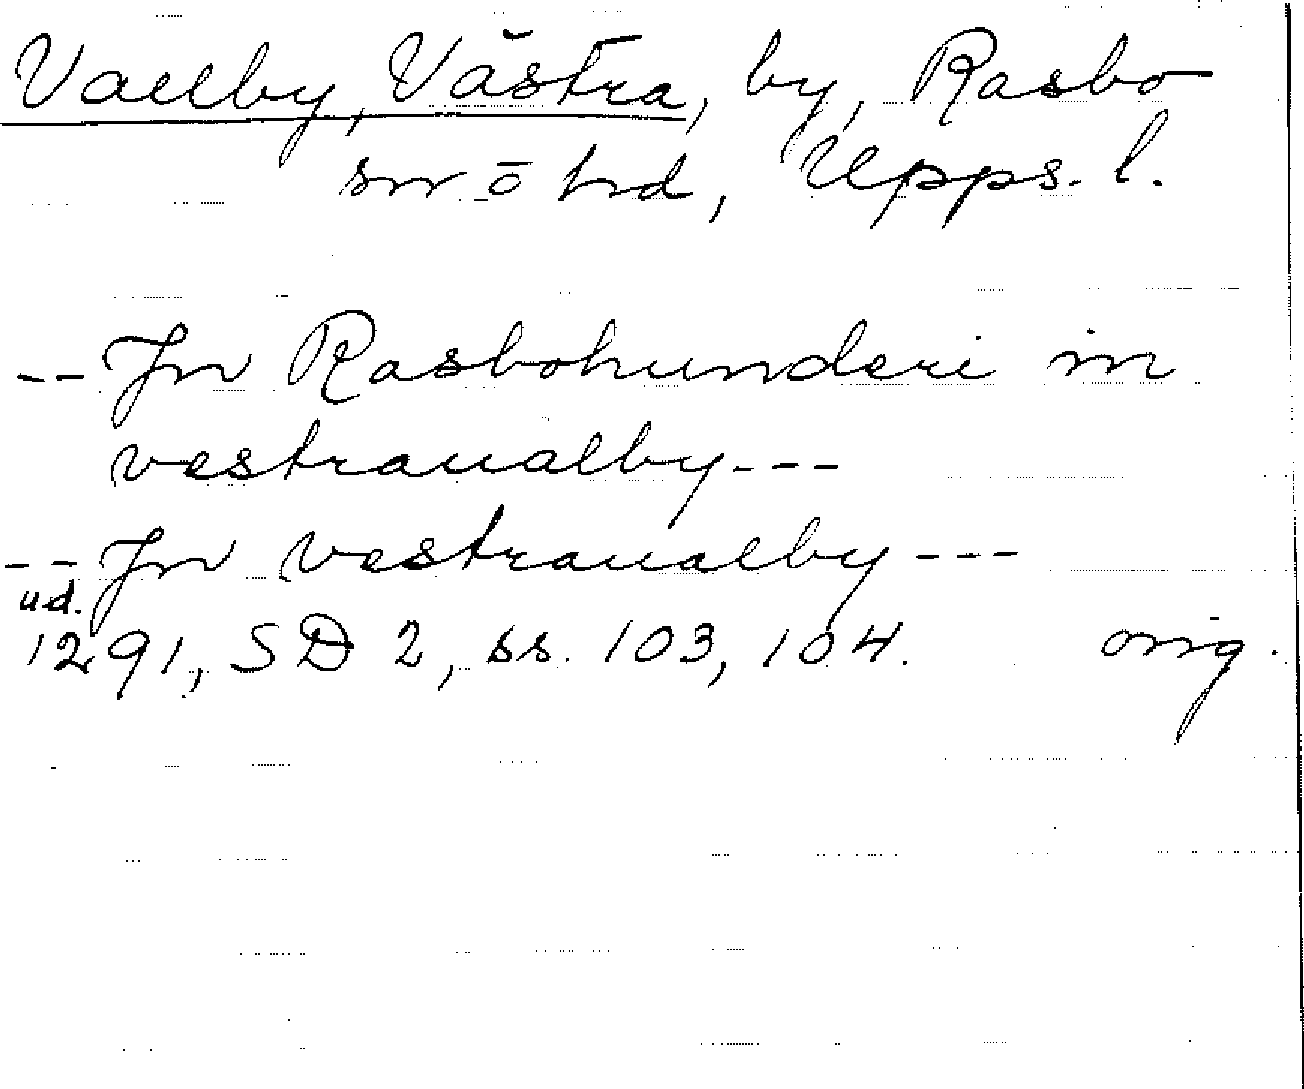 Vallby, Västra, by, Rasbo
sn o hd, Upps. l.
-- Jn Rasbohunderi in
vestraualby ---
-- Jn vestraualby ---
u.d.
1291, SD 2, ss. 103, 104. orig.